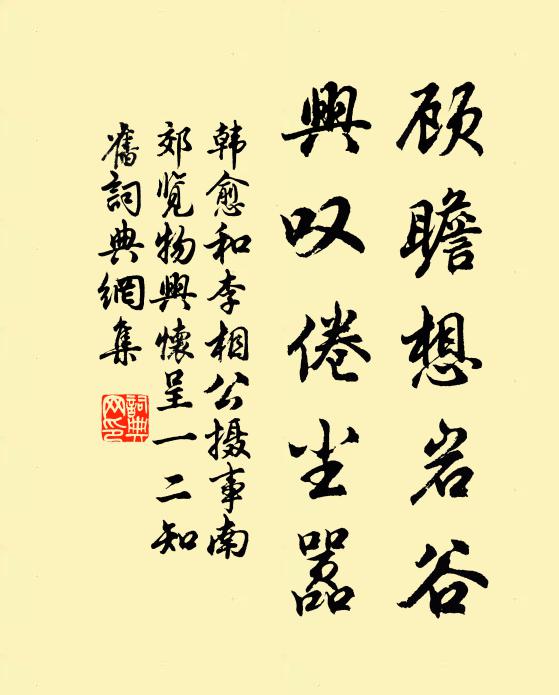 顾瞻想岩谷
興叹倦尘嚣
韩愈和李相公摄事南
郊览物興懷呈一二知
舊詞典網集
詞典
网印